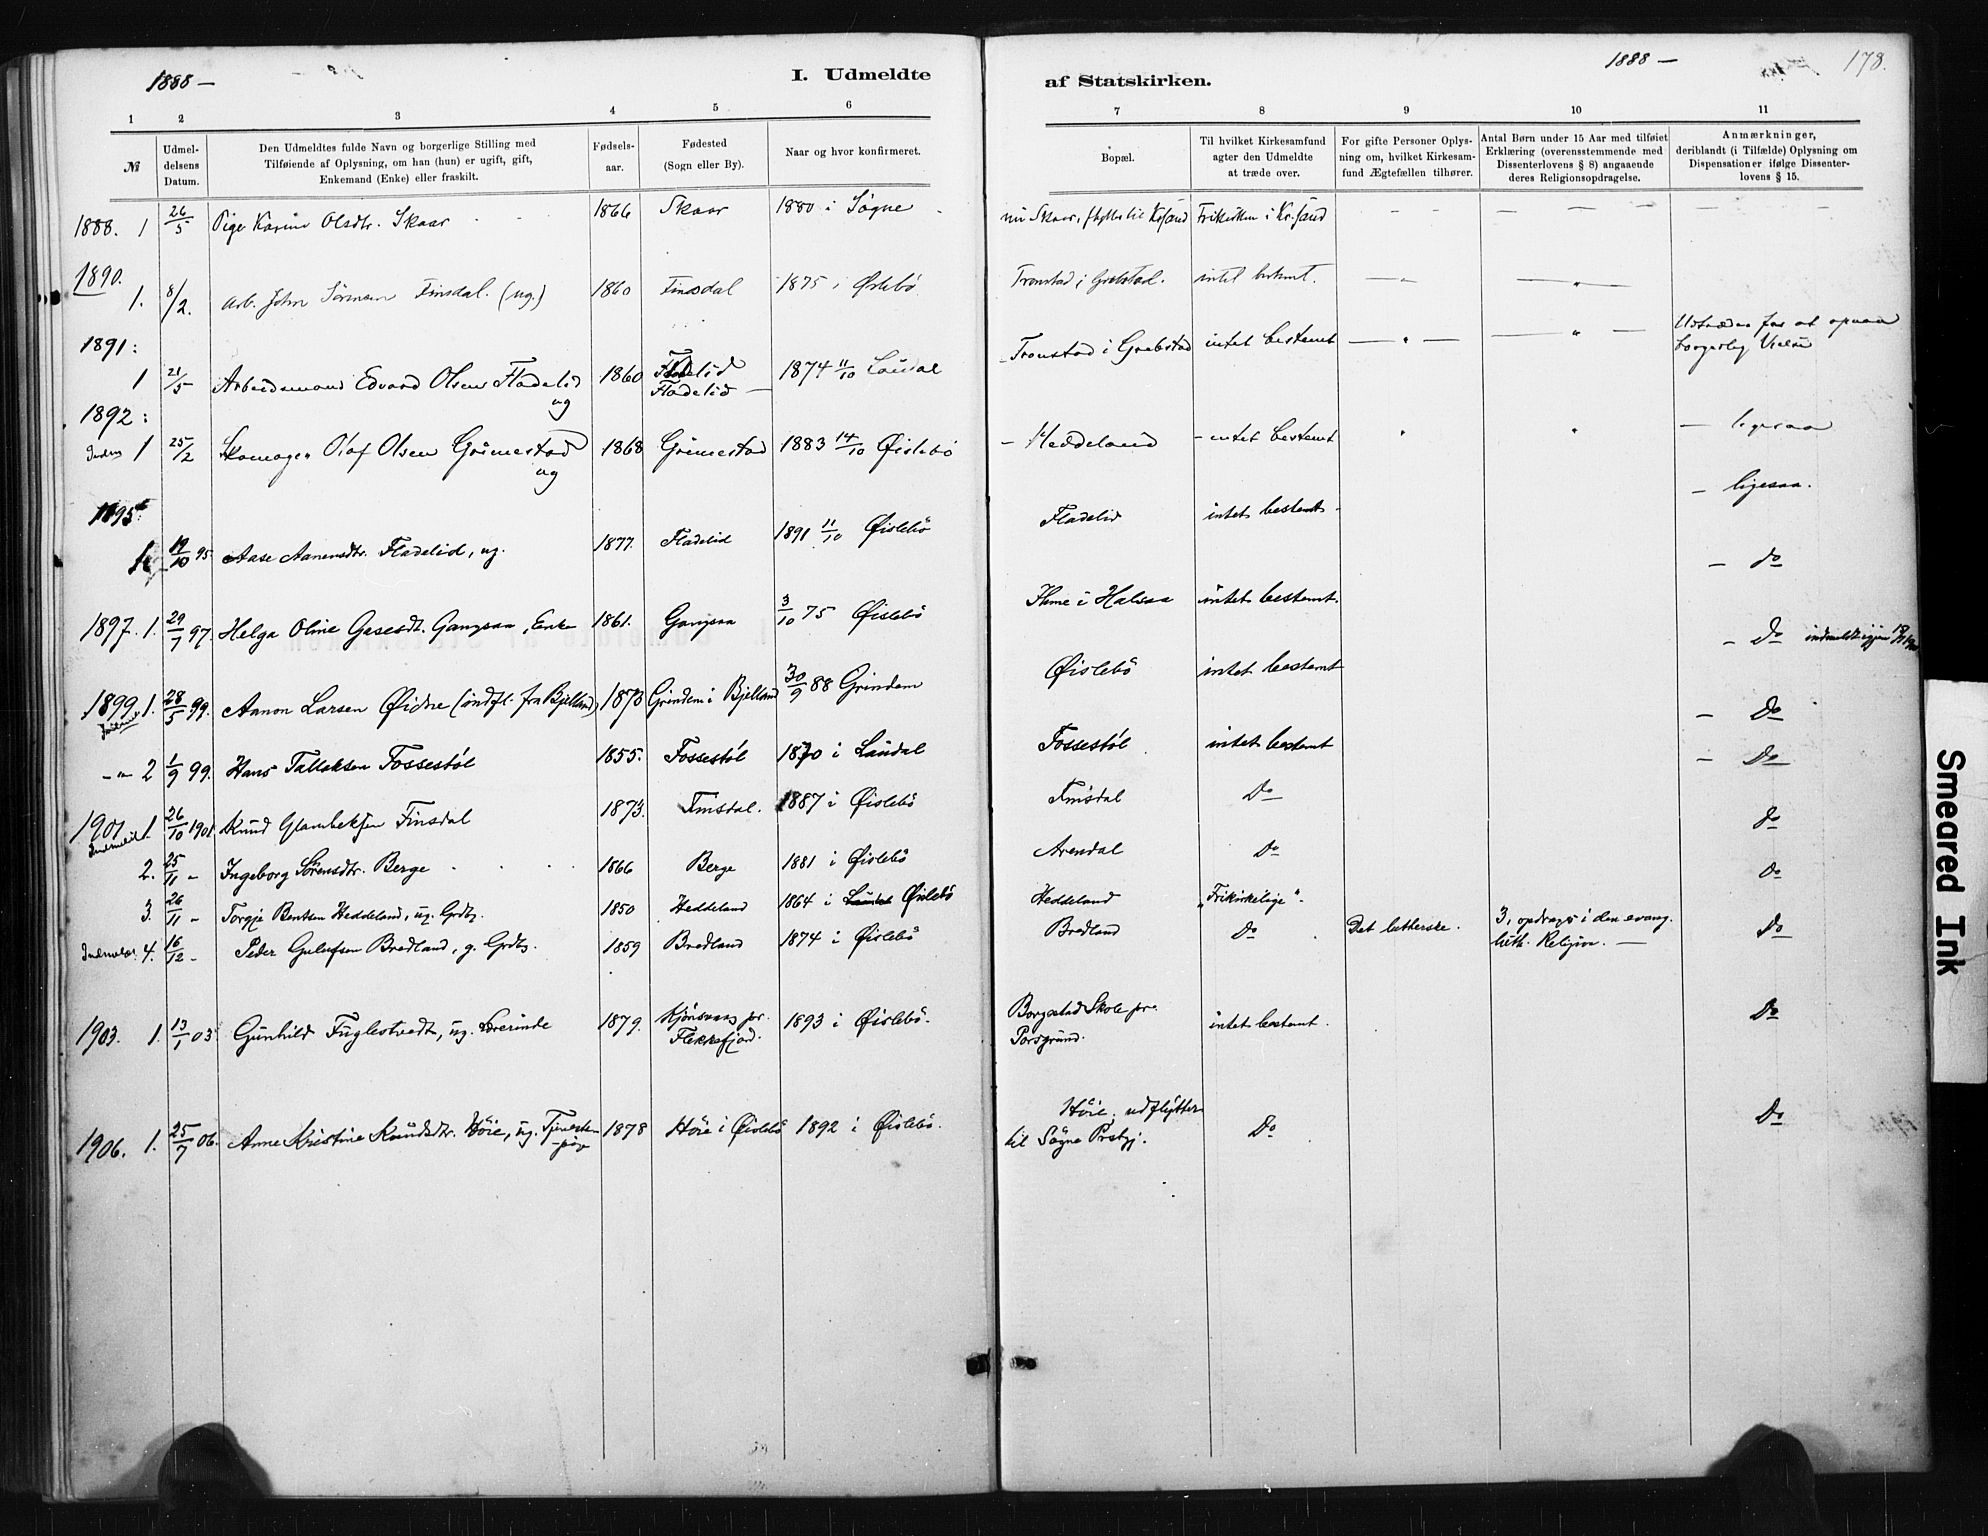 1888 —
I. Udmeldte
af Statskirken.
1888 —
178.
1 2 3 4 5 6 7 8 9 10 11
№
Udmel-
delsens
Datum.
Den Udmeldtes fulde Navn og borgerlige Stilling med
Tilføiende af Oplysning, om han (hun) er ugift, gift,
Enkemand (Enke) eller fraskilt.
Fødsels-
aar.
Fødested
(Sogn eller By).
Naar og hvor konfirmeret.
Bopæl.
Til hvilket Kirkesamfund
agter den Udmeldte
at træde over.
For gifte Personer Oplys-
ning om, hvilket Kirkesam-
fund Ægtefællen tilhører.
Antal Børn under 15 Aar med tilføiet
Erklæring (overensstemmende med
Dissenterlovens § 8) angaaende
deres Religionsopdragelse.
Anmærkninger,
deriblandt (i Tilfælde) Oplysning om
Dispensationer ifølge Dissenter-
lovens § 15.
1888. 1 26/5 Pige Karine Olsdtr. Skaar 1866 Skaar 1880 i Søgne Skaar, til Frikirken i Kr.sand
1890.
1. 8/2. Arb. John Sörensen Finsdal. (ug.) 1860 Finsdal 1875 i Øslebö Tronstad i Grebstad. intet bestemt.
1891:
1 21/5 Arbeidsmand Edvard Olsen Fladelid 1860 Fladelid 1874 11/10 Laudal Tronstad i Grebstad intet bestemt Udtræder for at opnaa
ug Fladelid — borgerlig Vielse
1892:
1 25/2 Skomager Olaf Olsen Grimestad 1868 Grimestad 1883 14/10 Øislebö — Heddeland — intet bestemt — ligesaa
ug
1895:
1 19/10 95 Aase Aanensdtr. Fladelid, ug. 1877. Fladelid 1891 11/10 Øislebö Fladelid intet bestemt — ligesaa.
1897. 1. 29/7 97. Helga Oline Gangsaa, Enke 1861. Gangsaa 3/10 75 Øislebö Ihme i Halsaa intet bestemt. — do
1899 1. 28/5 99. Aanon Larsen Øidne (indfl. fra Bjelland) 1873 Grindem i Bjelland 30/9 88 Grindem Øislebö intet bestemt — Do indmeldt igjen
-"- 2 1/9 99. Hans Tallaksen Fossestöl 1855. Fossestöl 1870 i Laudal Fossestöl intet bestemt — Do
1901 1. 26/10 1901. Knud Finsdal 1873. Finsdal. 1887 i Øislebö Finsdal Do — Do
Indmeldt
2. 25/11 - Ingeborg Sörensdtr. Berge 1866 Berge 1881 i Øislebö Arendal Do do
3. 26/11 - Torgje Bentsen Heddeland, ug. Grdbr. 1850 Heddeland 1864 i Laudal Øislebö Heddeland „Frikirkelige". do
Indmeldt 4. 16/12 - Peder Gulufsen Bredland, g. Grdbr. 1859 Bredland 1874 i Øislebö Bredland Do Det lutherske. 3, opdrages i den evang. Do
luth. Religion. —
1903. 1. 13/1 03 Gunhild Fuglestvedt, ug. Lærerinde 1879. pr. 1893 i Øislebö. Borgestad Skole pr. intet bestemt. Do
Flekkefjord. Porsgrund.
1906. 1. 25/7 06. Anne Kristine Knudsdtr. Höie, ug. Tjeneste- 1878 Höie i Øislebö 1892 i Øislebö. Höie, udflytter Do Do
-pige til Søgne Prstgj.
Smeared Ink